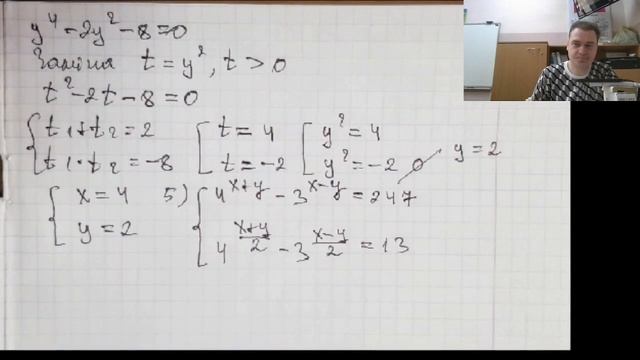 y⁴ - 2y² - 8 = 0
Заміна t = y², t > 0
t² - 2t - 8 = 0
{ t₁ + t₂ = 2
t₁ · t₂ = -8
[ t = 4
t = -2
[ y² = 4
y² = -2 ∅
y = 2
{ x = 4
y = 2
5) { 4^(x+y) - 3^(x-y) = 247
4^((x+y)/2) - 3^((x-y)/2) = 13